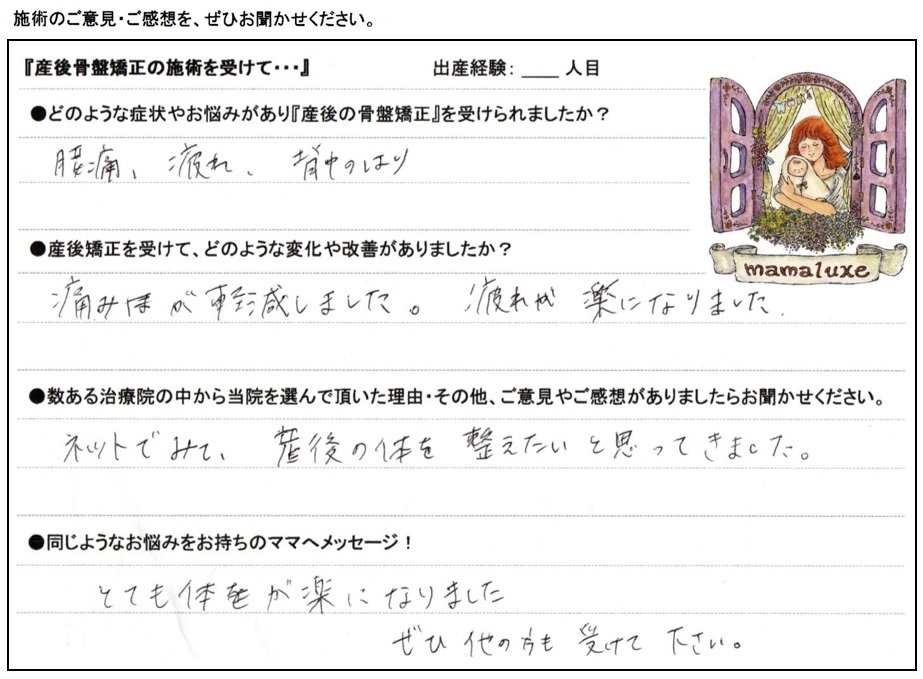 施術のご意見・ご感想を、ぜひお聞かせください。
『産後骨盤矯正の施術を受けて・・・』 出産経験: ___ 人目
●どのような症状やお悩みがあり『産後の骨盤矯正』を受けられましたか？
腰痛、疲れ、背中のはり
●産後矯正を受けて、どのような変化や改善がありましたか？
mamaluxe
痛みが軽減しました。疲れが楽になりました.
●数ある治療院の中から当院を選んで頂いた理由・その他、ご意見やご感想がありましたらお聞かせください。
ネットでみて、産後の体を整えたいと思ってきました。
●同じようなお悩みをお持ちのママへメッセージ！
とても体が楽になりました
ぜひ他の方も受けて下さい。